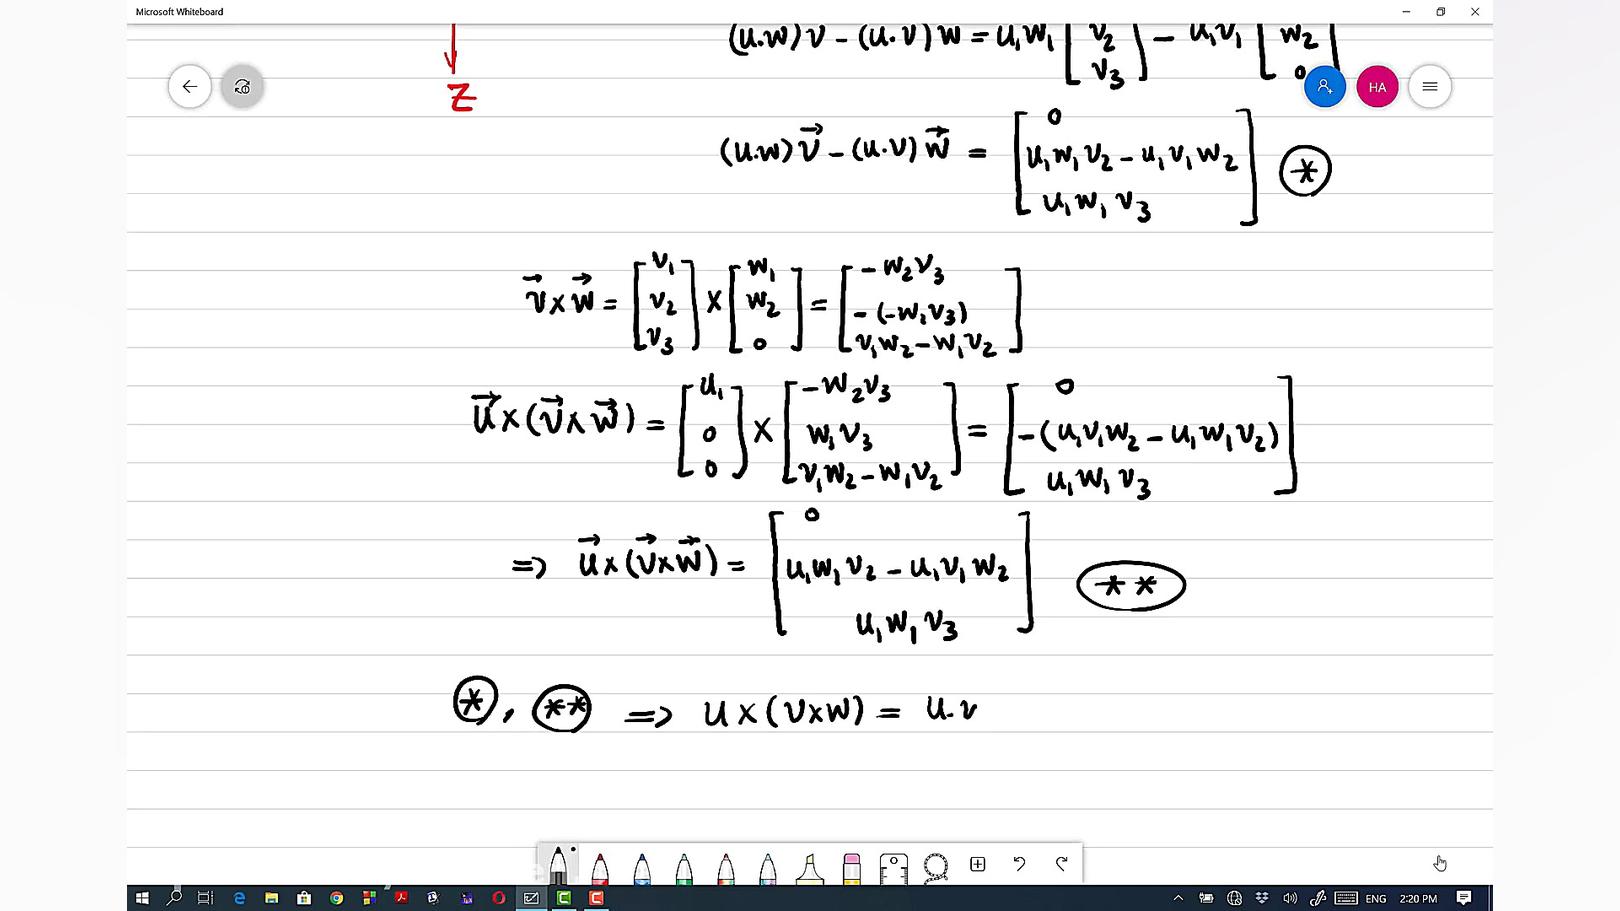 Microsoft Whiteboard
(u.w)v - (u.v)w = u₁w₁ [v₂ v₃] - u₁v₁ [w₂ 0]
Z
HA
(u.w)v⃗ - (u.v)w⃗ = [0
u₁w₁v₂ - u₁v₁w₂
u₁w₁v₃] (*)
v⃗ × w⃗ = [v₁ v₂ v₃] × [w₁ w₂ 0] = [-w₂v₃
-(-w₁v₃)
v₁w₂ - w₁v₂]
u⃗ × (v⃗ × w⃗) = [u₁ 0 0] × [-w₂v₃ w₁v₃ v₁w₂ - w₁v₂] = [0
-(u₁v₁w₂ - u₁w₁v₂)
u₁w₁v₃]
=> u⃗ × (v⃗ × w⃗) = [0
u₁w₁v₂ - u₁v₁w₂
u₁w₁v₃] (**)
(*), (**) => u × (v × w) = u.v
ENG 2:20 PM